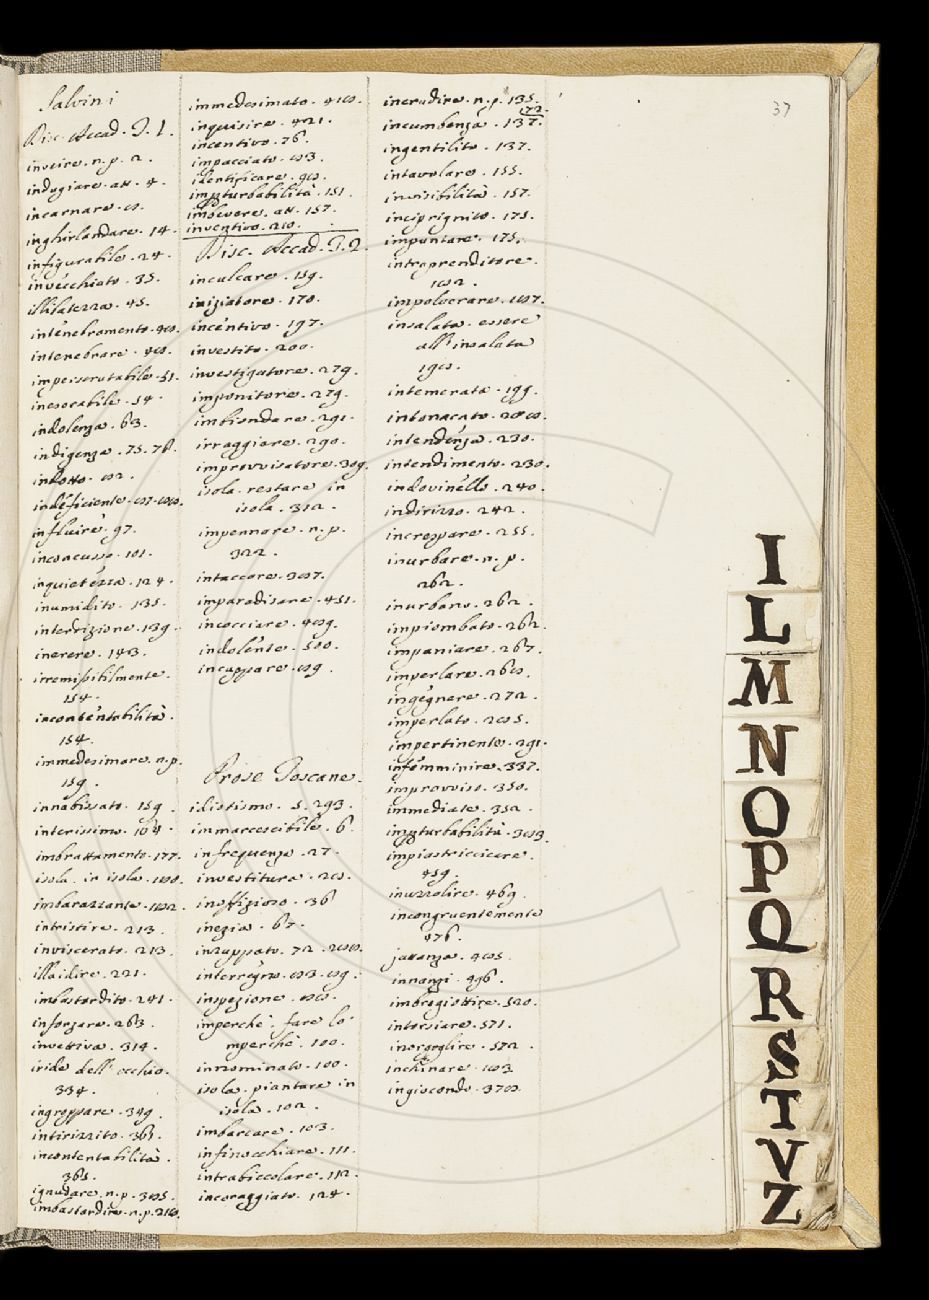 37
Salvini
Disc. Accad. T. 1.
inveire. n. p. 2.
indugiare. att. 4.
incarnare.
inghirlandare. 14.
infigurabile. 24.
invecchiato. 35.
illilatezza. 45.
intenebramento.
intenebrare.
imperscrutabile. 51.
inesorabile. 54.
indolenza. 63.
indigenza. 75. 76.
indotto.
indeficiente.
influire. 97.
inconcusso. 101.
inquietezza. 124.
inumidito. 135.
interdizione. 139.
inerere. 143.
irremisibilmente.
154.
incontentabilità.
154.
immedesimare. n. p.
159.
innabissato. 159.
interissimo. 164.
imbrattamento. 177.
isola. in isola.
imbarazzante.
intristire. 213.
inviscerato. 213.
illaidire. 221.
imbastardito. 241.
inforzare. 263.
invettiva. 314.
iride dell' occhio.
334.
ingroppare. 349.
intirizzito. 361.
incontentabilità.
361.
ignudare. n. p.
imbastardire. n. p. 210.
immedesimato.
inquisire. 421.
incentivo. 76.
impacciato.
identificare.
imperturbabilità. 151.
imbevere. att. 157.
inventivo. 210.
Disc. Accad. T. 2.
inculcare. 159.
iniziatore. 170.
incentivo. 197.
investito. 200.
investigatore. 279.
imponitore. 279.
imbiondare. 291.
irraggiare. 290.
improvvisatore. 309.
isola. restare in
isola. 312.
impennare. n. p.
322.
intaccare.
imparadisare. 451.
incocciare.
indolente. 500.
incappare.
Prose Toscane.
idiotismo. 5. 293.
immarcescibile. 6.
infrequenza. 27.
investitura.
inoffizioso. 36
inezia. 67.
inzuppato. 72.
interregno.
inspezione.
imperchè. fare lo
mperchè. 100.
innominato. 100.
isola. piantare in
isola. 102.
imbarcare. 103.
infinocchiare. 111.
intrabiccolare. 112.
incoraggiato. 124.
inerudire. n. p. 135.
172.
incumbenza. 137.
ingentilito. 137.
intavolare. 155.
invisibilità. 157.
inciprignito. 175.
impuntare. 175.
intraprenditore.
impolverare.
insalata. essere
all' insalata
intemerata. 199.
intonacato.
intendenza. 230.
intendimento. 230.
indovinello. 240.
indirizzo. 242.
increspare. 255.
inurbare. n. p.
262.
inurbano. 262.
impiombato. 262.
impaniare. 267.
imperlare.
ingegnare. 272.
imperlato.
impertinente. 291.
infemminire. 337.
improvviso. 350.
immediate. 352.
imperturbabilità.
impiastriccicare.
459.
inuzzolire. 469.
incongruentemente
476.
jattanza.
innanzi. 496.
intarsiare. 571.
inorgoglire. 572.
inchinare.
ingiocondo.
I
L
M
N
O
P
Q
R
S
T
V
Z